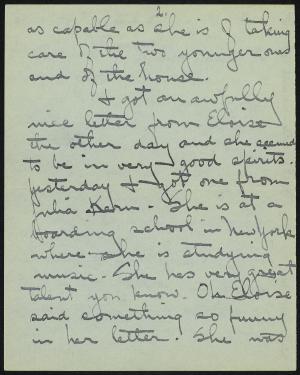 2.
as capable as she is of taking
care of the two younger ones
and of the house.
I got an awfully
nice letter from Eloise
the other day and she seemed
to be in very good spirits.
Yesterday I got one from
Julia Kern. She is at a
boarding school in New York
where she is studying
music. She has very great
talent you know. Oh Eloise
said something so funny
in her letter. She was